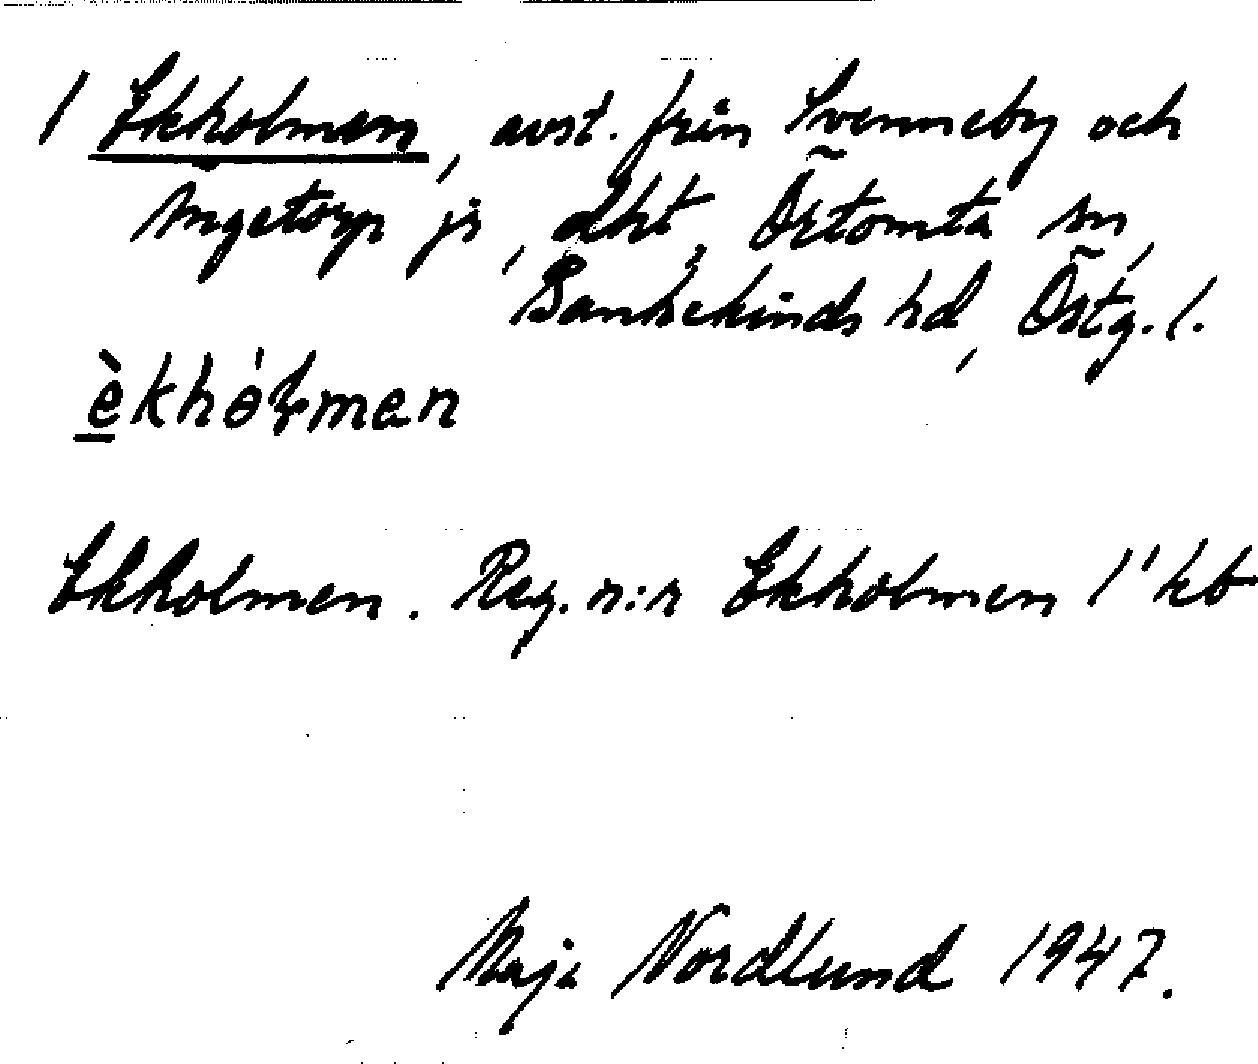 1 Ekholmen, avst. från Svenneby och
Mgetorp js, dht, Örtomta sn,
Bankekinds hd, Östg. l.
è̲khól̥mən
Ekholmen. Reg. n:r Ekholmen 1¹ kb
Maja Nordlund 1947.